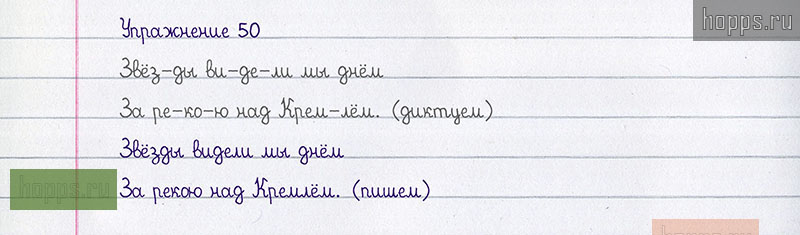 hopps.ru
Упражнение 50
Звёз-ды ви-де-ли мы днём
За ре-ко-ю над Крем-лём. (диктуем)
Звёзды видели мы днём
За рекою над Кремлём. (пишем)
hopps.ru
hopps.ru